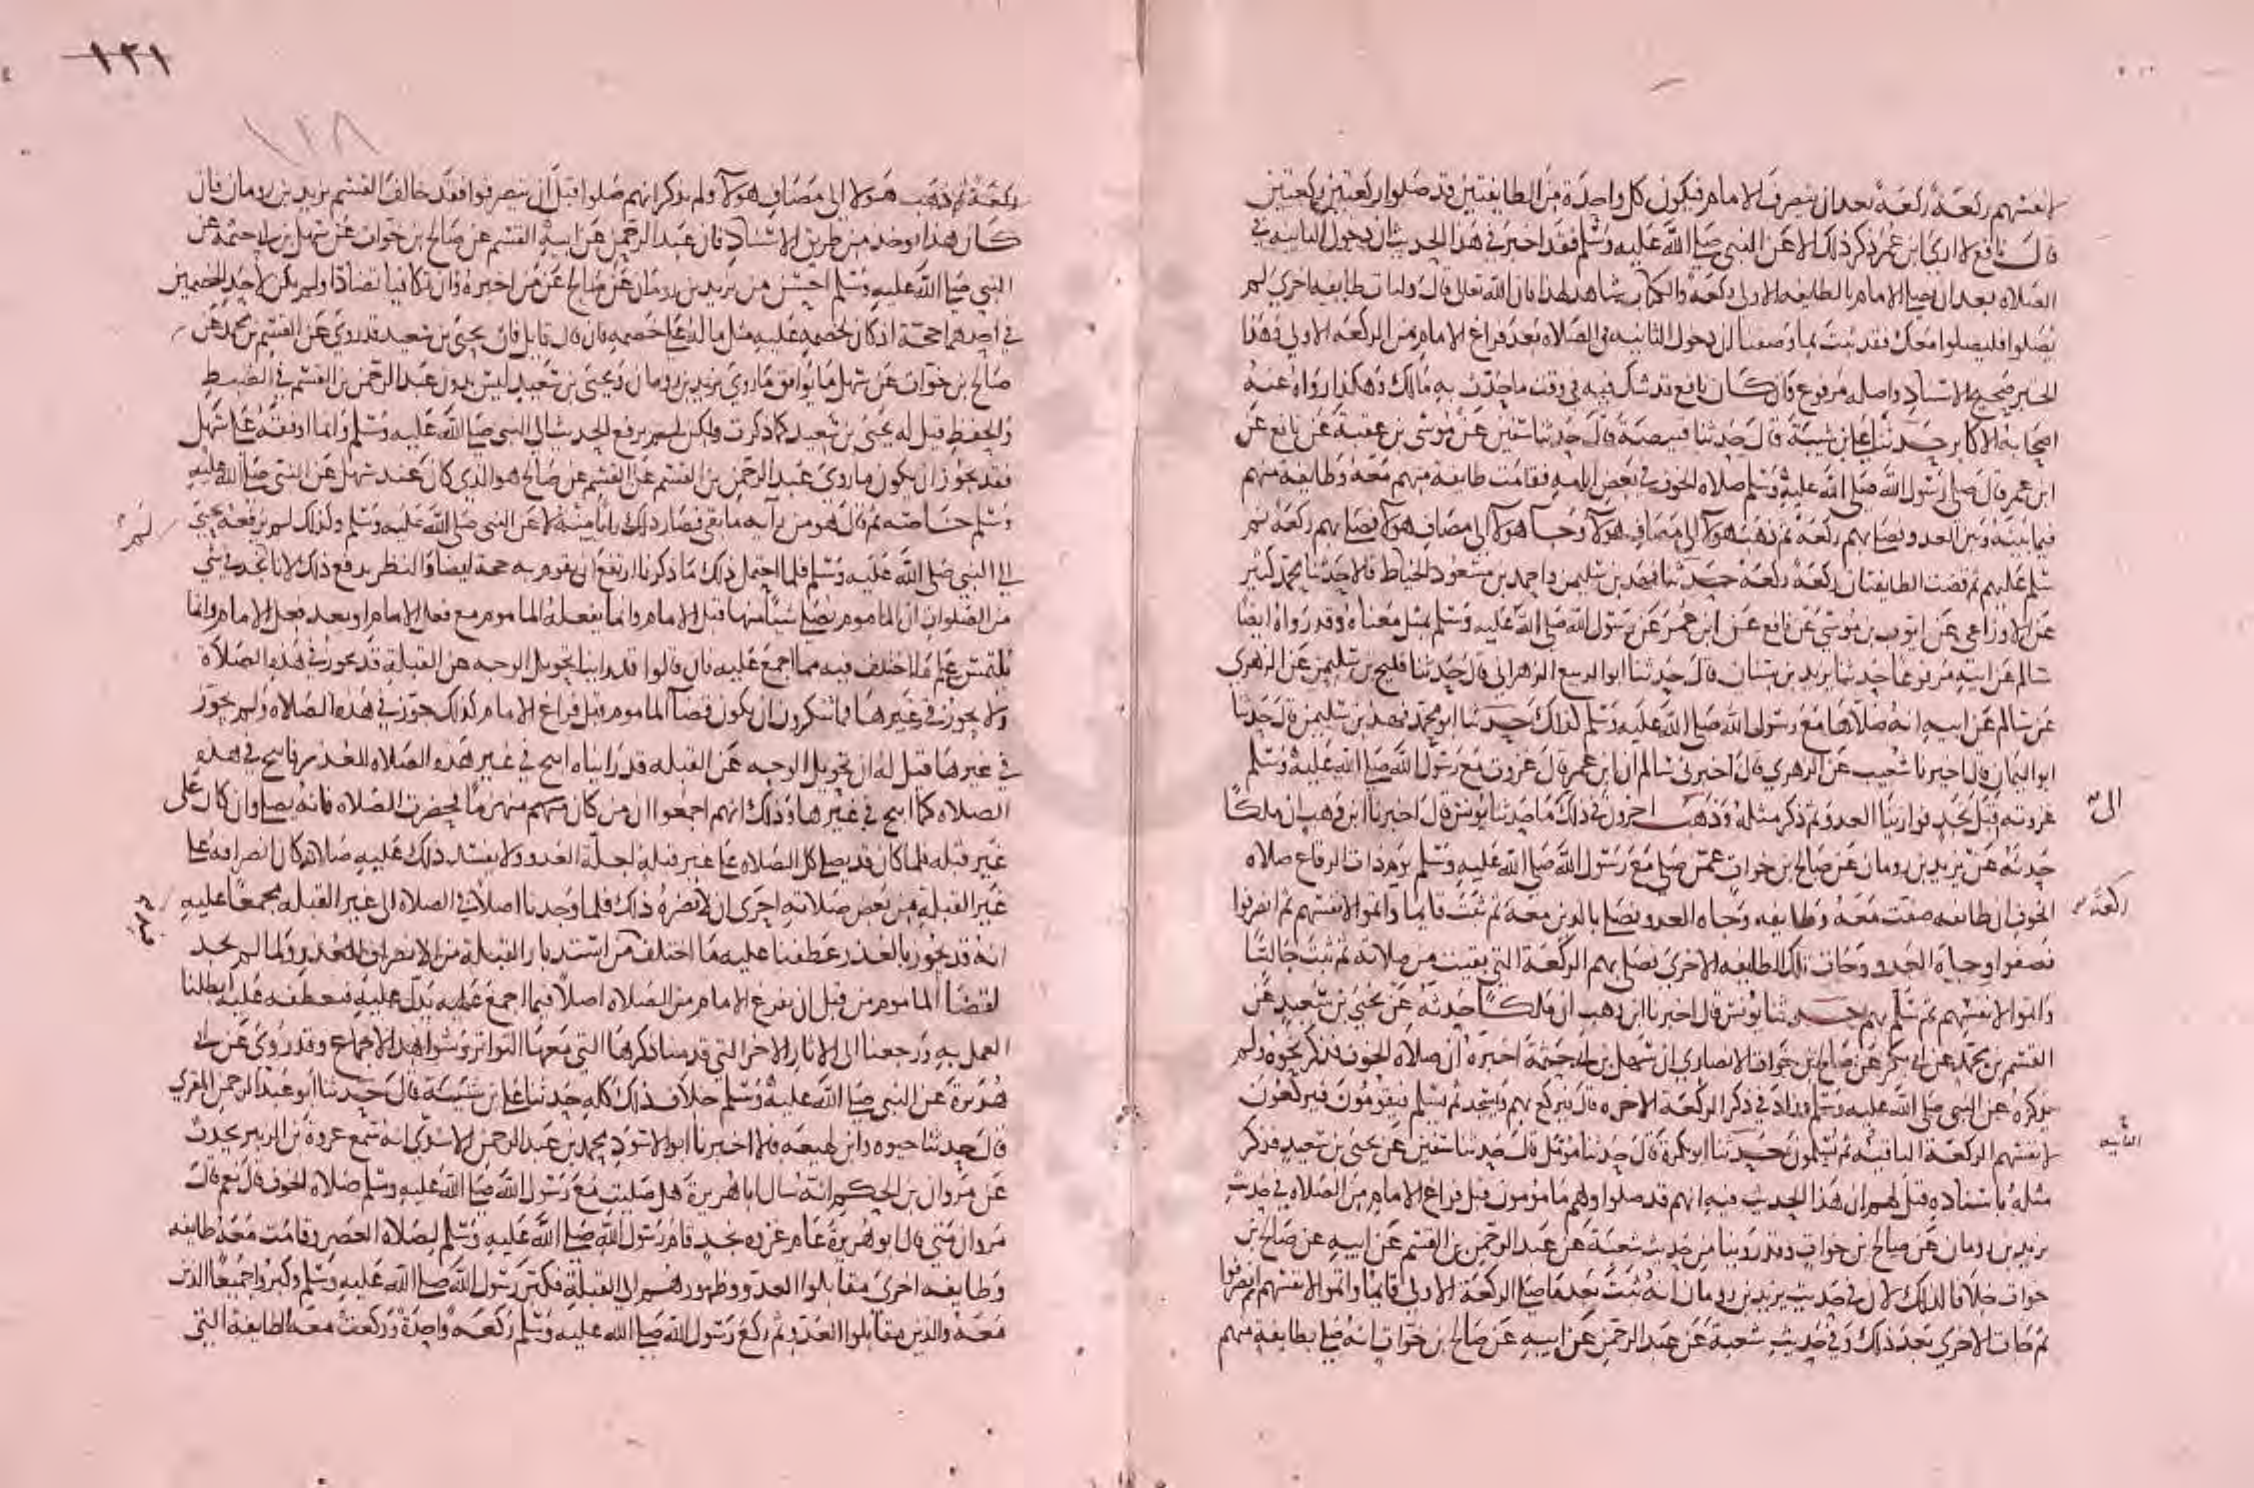 لانفسهم ركعة ركعة بعد ان ينصرف الامام فيكون كل واحدة من الطايفتين قد صلوا ركعتين ركعتين
قال نافع لا ارى ابن عمر ذكر ذلك الا عن النبي صلى الله عليه وسلم فقد اخبر في هذا الحديث ان دخول الثانيه في
الصلاه بعد ان يصلي الامام بالطايفه الاولى ركعة والكتاب شاهد لهذا فان الله تعالى قال ولتات طايفه اخرى لم
يصلوا فليصلوا معك فقد ثبت بما وصفنا ان دخول الثانيه في الصلاه بعد فراغ الامام من الركعه الاولى وهذا
الخبر صحيح الاسناد واصله مرفوع وان كان نافع قد شك فيه في وقت ما حدث به مالك وهكذا رواه عنه
اصحابه الاكابر حدثنا علي بن شيبة قال حدثنا قبيصة قال حدثنا سفين عن موسى بن عقبة عن نافع عن
ابن عمر قال صلى رسول الله صلى الله عليه وسلم صلاه الخوف في بعض ايامه فقامت طايفة منهم معه وطايفة منهم
فيما بينه وبين العدو فصلى بهم ركعة ثم ذهب هولا الى مصاف هولا وجا هولا الى مصاف هولا فصلى بهم ركعة ثم
سلم عليهم ثم قضت الطايفتان ركعة ركعة حدثنا فهد بن سليمن واحمد بن مسعود الخياط قالا حدثنا محمد كثير
عن الاوزاعي عن ايوب بن موسى عن نافع عن ابن عمر عن رسول الله صلى الله عليه وسلم بمثل معناه وقد رواه ايضا
سالم عن ابيه مرفوعا حدثنا يزيد بن سنان قال حدثنا ابو الربيع الزهراني قال حدثنا فليح بن سليمن عن الزهري
عن سالم عن ابيه انه صلاها مع رسول الله صلى الله عليه وسلم كذلك حدثنا ابو محمد فهد بن سليمن قال حدثنا
ابو اليمان قال اخبرنا شعيب عن الزهري قال اخبرني سالم ان ابن عمر قال غزوت مع رسول الله صلى الله عليه وسلم
غزوته قبل نجد فوازينا العدو ثم ذكر مثله وذهب اخرون في ذلك ما حدثنا يونس قال اخبرنا ابن وهب ان ملكا
الى
حدثه عن يزيد بن رومان عن صالح بن خوات عمن صلى مع رسول الله صلى الله عليه وسلم يوم ذات الرقاع صلاه
الخوف ان طايفه صفت معه وطايفه وجاه العدو فصلى بالذين معه ثم ثبت قايما واتموا لانفسهم ثم انصرفوا
ركعة
فصفوا وجاه العدو وجات تلك الطايفه الاخرى فصلى بهم الركعة التي بقيت من صلاته ثم ثبت جالسا
واتموا لانفسهم ثم سلم بهم حدثنا يونس قال اخبرنا ابن وهب ان مالكا حدثه عن يحيى بن سعيد عن
القسم بن محمد عن ابي بكر عن صالح بن خوات الانصاري ان سهل بن ابي حثمة اخبره ان صلاة الخوف فذكر نحوه ولم
يذكره عن النبي صلى الله عليه وسلم وزاد في ذكر الركعة الاخره قال فيركع بهم ويسجد ثم يسلم فيقومون فيركعون
لانفسهم الركعة الباقيه ثم يسلمون حدثنا ابو بكرة قال حدثنا مومل قال حدثنا سفين عن يحيى بن سعيد فذكر
الثانيه
مثله باسناده قيل لهم ان هذا الحديث فيه انهم قد صلوا وهم مامومون قبل فراغ الامام من الصلاه في حديث
يزيد بن رومان عن صالح بن خوات وقد روينا من حديث شعبة عن عبد الرحمن بن القسم عن ابيه عن صالح بن
خوات خلافا لذلك لان في حديث يزيد بن رومان انه ثبت بعد ما صلى الركعة الاولى قايما واتموا لانفسهم ثم انصرفوا
ثم جات الاخرى بعد ذلك وفي حديث شعبة عن عبد الرحمن عن ابيه عن صالح بن خوات انه صلى بطايفه منهم
١٢١
١٢٨
ركعة ثم ذهب هولا الى مصاف هولا ولم يذكر انهم صلوا قبل ان ينصرفوا فقد خالف القسم يزيد بن رومان فان
كان هذا يوخذ من طريق الاسناد فان عبد الرحمن عن ابيه القسم عن صالح بن خوات عن سهل بن ابي حثمة عن
النبي صلى الله عليه وسلم احسن من يزيد بن رومان عن صالح عن من اخبره وان تكافيا تضادا ولم يكن لاحد الخصمين
في احدهما حجة اذ كان لخصمه عليه مثل ما له على خصمه فان قال قايل فان يحيى بن سعيد قد روى عن القسم بن محمد عن
صالح بن خوات عن سهل ما يوافق ما روى يزيد بن رومان ويحيى بن سعيد ليس بدون عبد الرحمن بن القسم في الضبط
والحفظ قيل له يحيى بن سعيد كما ذكرت ولكن لم يرفع الحديث الى النبي صلى الله عليه وسلم وانما اوقفه على سهل
فقد يجوز ان يكون ما روى عبد الرحمن بن القسم عن القسم عن صالح هو الذي كان عند سهل عن النبي صلى الله عليه
وسلم خاصة ثم قال هو من رايه ما بقي فصار ذلك رايا منه لا عن النبي صلى الله عليه وسلم ولذلك لم يرفعه يحيى
الى النبي صلى الله عليه وسلم فلما احتمل ذلك ما ذكرنا ارتفع ان يقوم به حجة ايضا والنظر يدفع ذلك لانا نجد في شي
من الصلوات ان الماموم يصلي شيا منها قبل الامام وانما يفعله الماموم مع فعل الامام او بعد فعل الامام وانما
يلتمس علم ما اختلف فيه مما اجمع عليه فان قالوا قد راينا تحويل الوجه عن القبلة قد يجوز في هذه الصلاة
ولا يجوز في غيرها فما تنكرون ان يكون قضا الماموم قبل فراغ الامام كذلك جوز في هذه الصلاه ولم يجوز
في غيرها قيل له ان تحويل الوجه عن القبله قد رايناه ابيح في غير هذه الصلاه للعذر فابيح في هذه
الصلاه كما ابيح في غيرها وذلك انهم اجمعوا ان من كان منهزما فحضرت الصلاه فانه يصلي وان كان على
غير قبله فلما كان قد يصلي كل الصلاه على غير قبله لعلة العدو ولا يفسد ذلك عليه صلاته كان انصرافه على
غير القبلة من بعض صلاته احرى ان لا يضره ذلك فلما وجدنا اصلا في الصلاه الى غير القبله مجمعا عليه
انه قد يجوز بالعذر عطفنا عليه ما اختلف من استدبار القبلة من الانصراف للعذر ولما لم نجد
لقضا الماموم من قبل ان يفرغ الامام من الصلاه اصلا فيما اجمع عليه يدل عليه فنعطفه عليه ابطلنا
العمل به ورجعنا الى الاثار الاخر التي قدمنا ذكرها التي معها التواتر وشواهد الاجماع وقد روى عن ابي
هريرة عن النبي صلى الله عليه وسلم خلاف ذلك كله حدثنا علي بن شيبة قال حدثنا ابو عبد الرحمن المقري
قال حدثنا حيوه وابن لهيعه قالا اخبرنا ابو الاسود محمد بن عبد الرحمن الاسدي انه سمع عروة بن الزبير يحدث
عن مروان بن الحكم انه سال ابا هريرة هل صليت مع رسول الله صلى الله عليه وسلم صلاه الخوف قال نعم قال
مروان متى قال ابو هريرة عام غزوه نجد قام رسول الله صلى الله عليه وسلم لصلاه العصر وقامت معه طايفه
وطايفه اخرى مقابلوا العدو وظهورهم الى القبلة فكبر رسول الله صلى الله عليه وسلم وكبروا جميعا الذين
معه والذين مقابلوا العدو ثم ركع رسول الله صلى الله عليه وسلم ركعة واحدة وركعت معه الطايفة التي